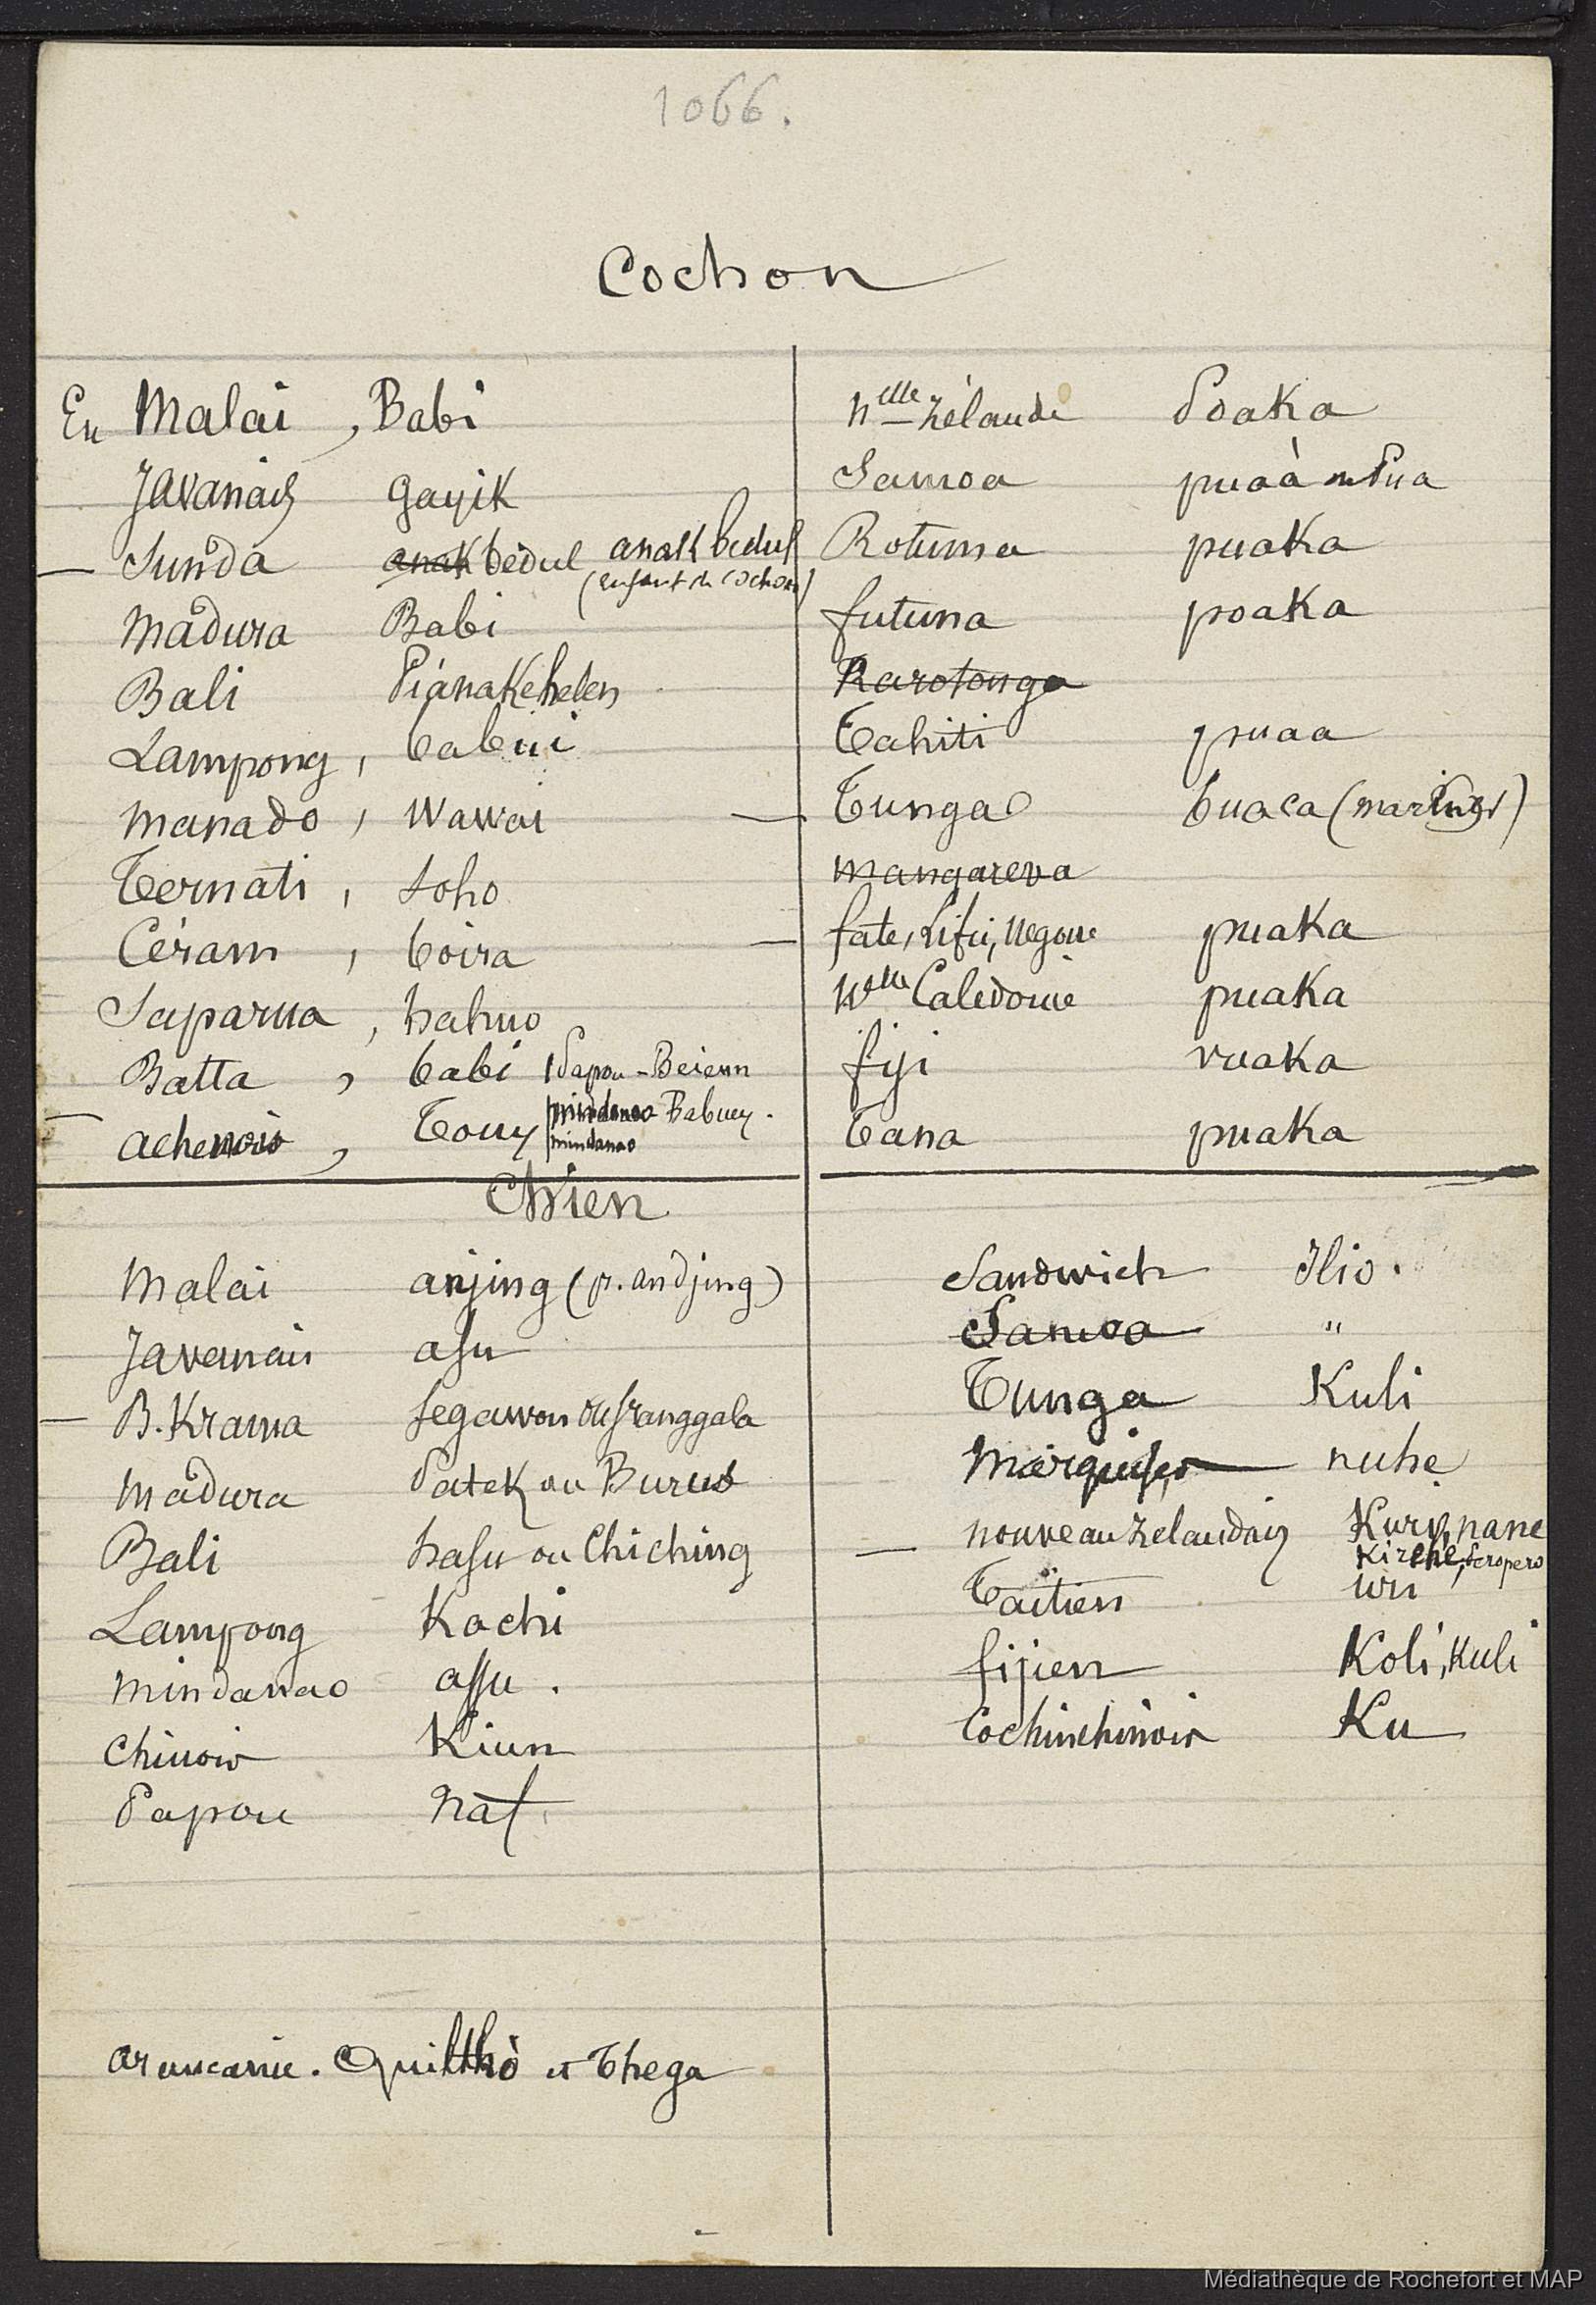 1066.
Cochon
En Malai, Babi
Javanais gayik
— Sunda anak bedul anak bedul
(enfant de cochon)
Madura Babi
Bali Piánakehelen
Lampong, babui
manado, Wawai
Ternati, Soho
Céram, boira
Saparua, hahuo
Batta, babi Papou - Beienn
— achenois, Touy mindanao Babuey.
mindanao
Nelle Zélande Poaka
Samoa puaà ou Pua
Rotuma puaka
futuna poaka
Rarotonga
Tahiti puaa
— Tunga buaca (mariner)
mangareva
— fate, Lifu, puaka
Nelle Calédonie puaka
fiji vuaka
Tana puaka
Chien
Malai anjing (pr. andjing)
Javanais asu
— B. Krama segawon ou sranggala
Madura Patek ou Burus
Bali hasu ou Chiching
Lampong Kachi
mindanao assu.
Chinois Kiun
Papou naf
araucanie. Quilthò et Thega
Sandwich Ilio.
Samoa "
Tunga Kuli
Marquises nuhe
— nouveau zelandais Kuri, nane
Kirehe, peropero
Taïtien uri
fijien Koli, Kuli
Cochinchinois Ku
Médiathèque de Rochefort et MAP